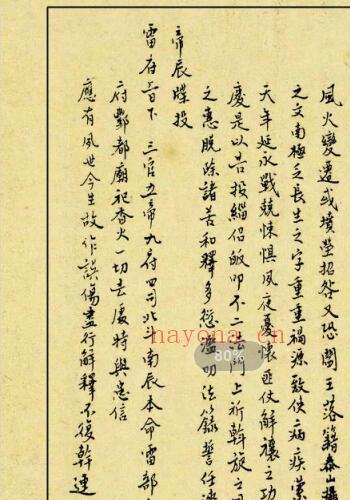 風火變遷或墳塋招咎又恐閻王落籍泰山攝
之文南極乏長生之字重重禍源致使病疾縈
天年延永戰兢悚惧夙夜憂懷匪伏解禳之功
慶是以告投緇侣皈叩不二法門上祈斡旋之
之慝脱除諸苦和釋多愆濫叨法籙誓任
帝辰牒投
雷府吉下 三官五帝九府四司北斗南辰本命雷部
府酆都廟祀香火一切去處特與患信
應有夙世今生故作誤傷盡行解釋不復幹連
hayona.cn
80%